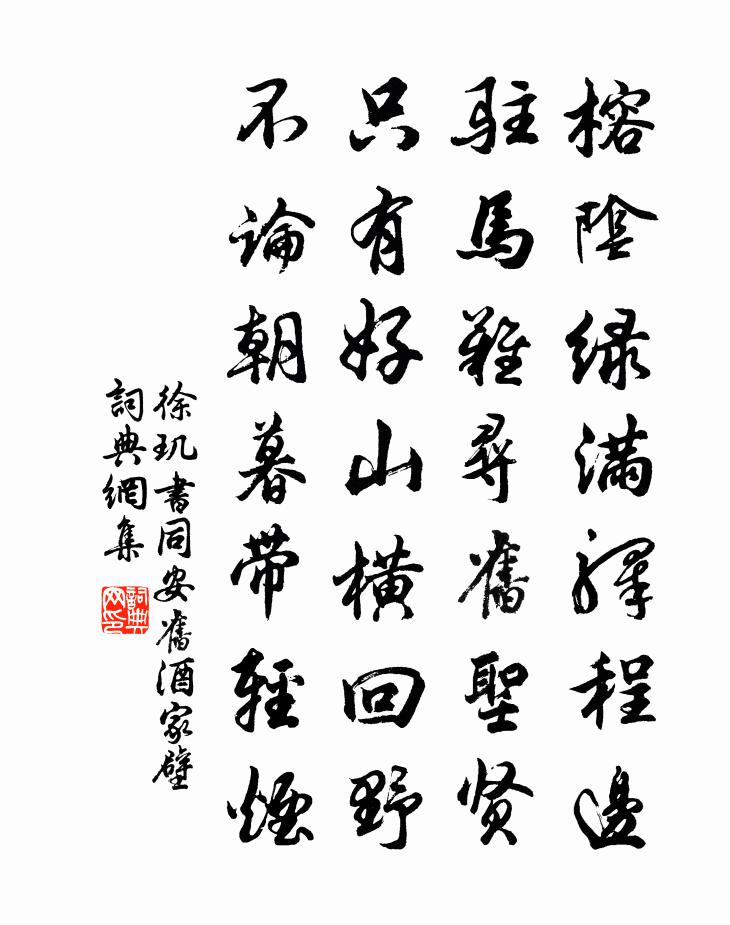 榕陰綠滿驛程邊
駐馬難尋舊聖贤
只有好山橫回野
不論朝暮帶輕煙
徐玑書同安舊酒家壁
詞典網集
詞典网印